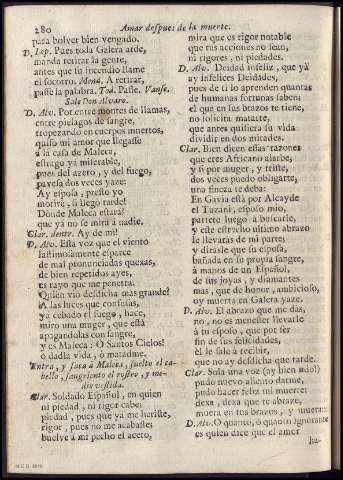 280
Amar despues de la muerte.
para bolver bien vengado.
D. Lop. Pues toda Galera arde,
manda retirar la gente,
antes que su incendio llame
el socorro. Mend. A retirar,
passe la palabra. Tod. Passe. Vanse.
Sale Don Alvaro.
D. Alv. Por entre montes de llamas,
entre pielagos de sangre,
tropezando en cuerpos muertos,
quiso mi amor que llegasse
à la casa de Maleca,
estrago yà miserable,
pues del azero, y del fuego,
pavesa dos veces yaze:
Ay esposa, presto yo
morirè, si llego tarde!
Dònde Maleca estarà?
que yà no se mira à nadie.
Clar. dentr. Ay de mi!
D. Alv. Esta voz que el viento
lastimosamente esparce
de mal pronunciadas quexas,
de bien repetidos ayes,
es rayo que me penetra.
Quien viò desdicha mas grande!
A las luces que confusas,
ya cebado el fuego, hace,
miro una muger, que està
apagandolas con sangre,
y es Maleca: O Santos Cielos!
ò dadla vida, ò matadme.
Entra, y saca à Maleca, suelto el ca-
bello, sangriento el rostro, y me-
dio vestida.
Clar. Soldado Español, en quien
ni piedad, ni rigor cabe;
piedad, pues que yà me heriste,
rigor, pues no me acabaste;
buelve à mi pecho el azero,
mira que es rigor notable
que tus acciones no sean,
ni rigores, ni piedades.
D. Alv. Deidad infeliz, que yà
ay infelices Deidades,
pues de ti lo aprenden quantas
de humanas fortunas saben;
el que en los brazos te tiene,
no solicita matarte,
que antes quisiera su vida
dividir en dos mitades.
Clar. Bien dicen essas razones
que eres Africano alarbe,
y si por muger, y triste,
dos veces puedo obligarte,
una fineza te deba:
En Gavia està por Alcayde
el Tuzani, esposo mio,
partete luego à buscarle,
y este estrecho ultimo abrazo
le llevaràs de mi parte;
y dirasle que su esposa,
bañada en su propia sangre,
à manos de un Español,
de sus joyas, y diamantes
mas, que de honor, ambicioso,
oy muerta en Galera yaze.
D. Alv. El abrazo que me das,
no, no es menester llevarle
à tu esposo, que por ser
fin de sus felicidades,
èl le sale à recibir,
que no ay desdicha que tarde.
Clar. Sola una voz (ay bien mio!)
pudo nuevo aliento darme,
pudo hacer feliz mi muerte:
dexa, dexa que te abraze,
muera en tus brazos, y muera.
D. Alv. O quanto, ò quanto ignorante
es quien dice que el amor